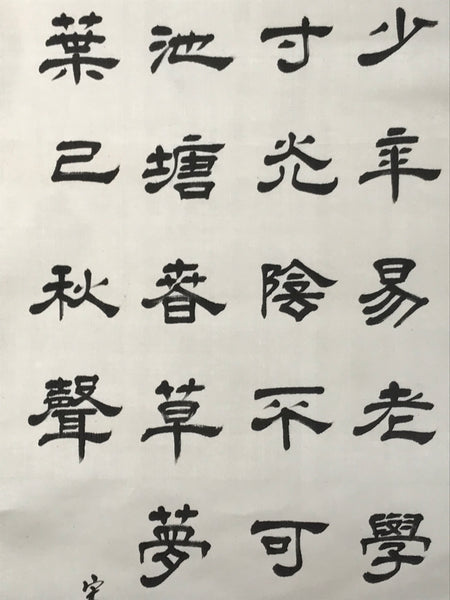 少年易老學
寸光陰不可
池塘春草夢
葉已秋聲
宋